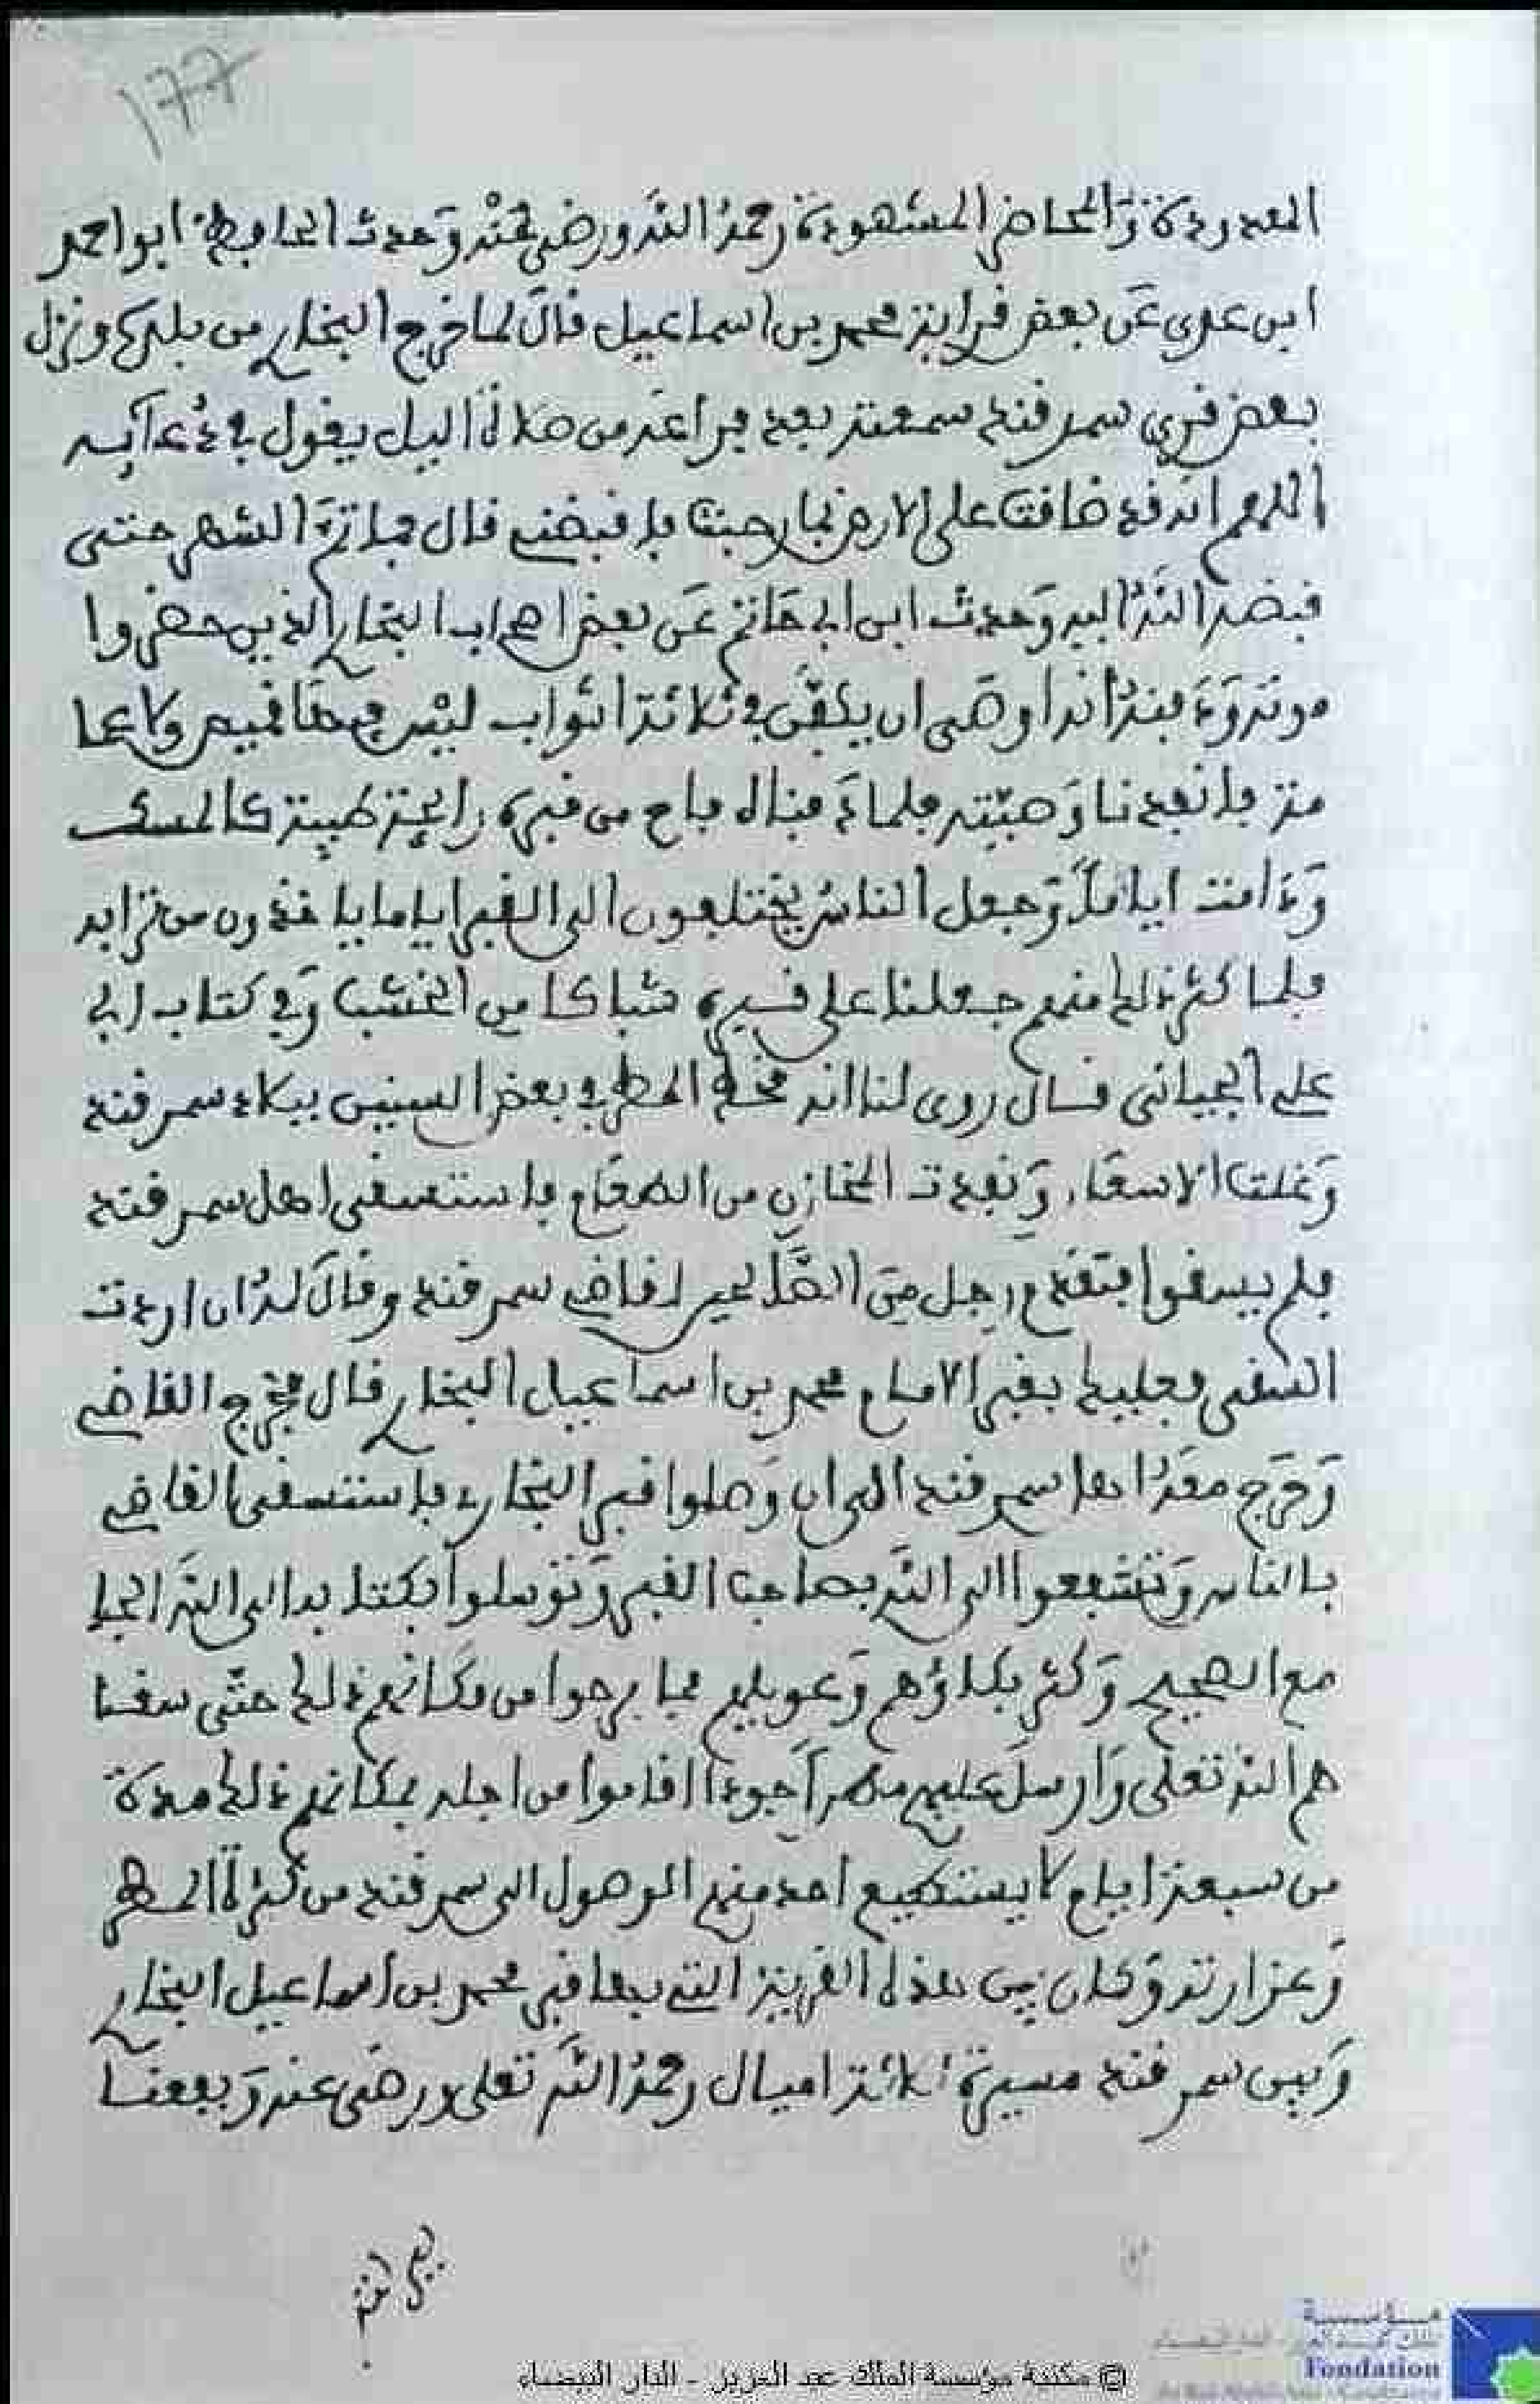 ١٧٧
المعدودة والمحاضر المشهودة رحمهُ اللهَ ورضي عنه وَحدث الحافظ ابو احمد
ابن عدي عَن بعض قرابته محمد بن اسماعيل قالَ لما خرج البخاري من بلده ونزل
بعض قرى سمرقند سمعته بعد فراغه من صلاة اليل يقول في دُعآيه
اللهم انه قد ضاقت على الارض بما رحبت فاقبضني قال فما تمَّ الشهر حتى
قبضه اللهُ اليه وَحدث ابن ابي حَاتم عَن بعض اصحاب البخاري الذين حضروا
موته وَدَفنهُ انه اوصَى ان يكفّن في ثلاثة اثواب ليْس فيهَا قميص ولا عما
مة فانفدنا وَصيّته فلما دَفناه فاح من قبره رايحة طيبة كالمسك
وَدَامت اياماً وَجعل الناسُ يختلفون الى القبر اياما ياخذون من ترابه
فلما كثر ذلك منهم جعلنا على قبره شباكا من الخشب وَفي كتاب ابي
علي الجياني قال روى لنا انه قحط المطر في بعض السنين ببلاد سمرقند
وَغلت الاسعَار وَنفدت المخازن من الطعَام فاستسقى اهل سمرقند
فلم يسقوا فتقدم رجل مِن الصَّالحين لقاضي سمرقند وقالَ لهُ ان اردت
السقى فعليك بقبر الامام محمد بن اسماعيل البخاري قال فخرج القاضي
وَخرَج معَهُ اهل سمرقند الى ان وَصلوا قبر البخاري فاستسقى القاضي
بالناس وَتشفعوا الى اللهَ بصاحب القبر وَتوسلوا بكتابه الى اللهَ الجا
مع الصحيح وَكثر بكاؤهم وَعويلهم فما برحوا من مكانهم ذلك حتّى سقا
هم اللهُ تعلى وَارسلَ عليهم مطرا جودا اقاموا من اجله بمكانهم ذلك مدة
من سبعة ايام لا يستطيع احد منهم الوصول الى سمرقند من كثرة المطر
وَغزارته وَكان بين هذه القرية التي بها قبر محمد بن اسماعيل البخاري
وَبين سمرقند مسيرة ثلاثة اميال رحمهُ اللهَ تعلى ورضَى عنه وَنفعنا
© مكتبة مؤسسة الملك عبد العزيز - الدار البيضاء
مؤسسة
Fondation